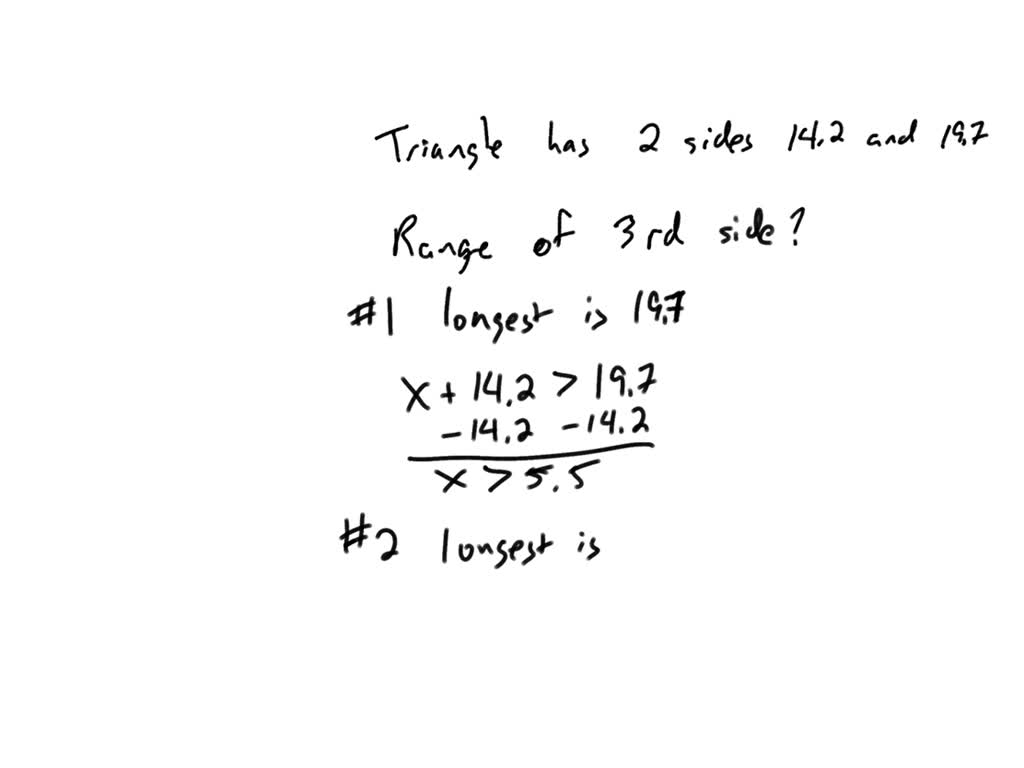 Triangle has 2 sides 14.2 and 19.7
Range of 3rd side?
#1 longest is 19.7
x + 14.2 > 19.7
-14.2 -14.2
x > 5.5
#2 longest is